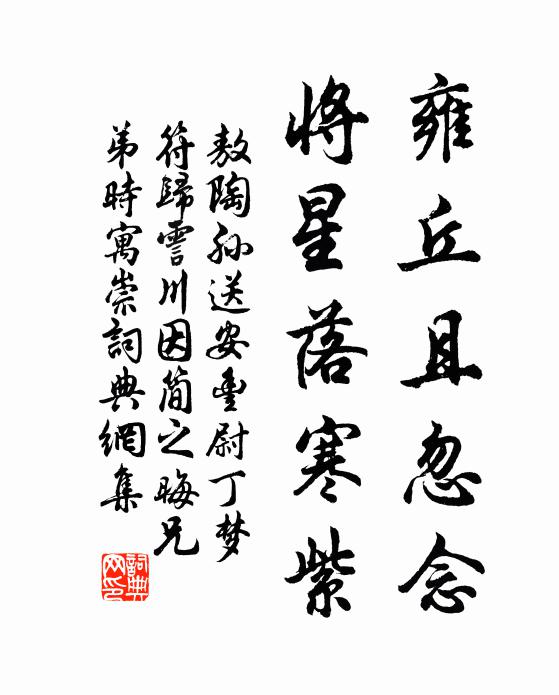 雍丘且忽念
將星落寒紫
敖陶孙送安豊尉丁梦
符歸霅川因简之晦兄
弟時寓崇詞典網集
詞典
网印